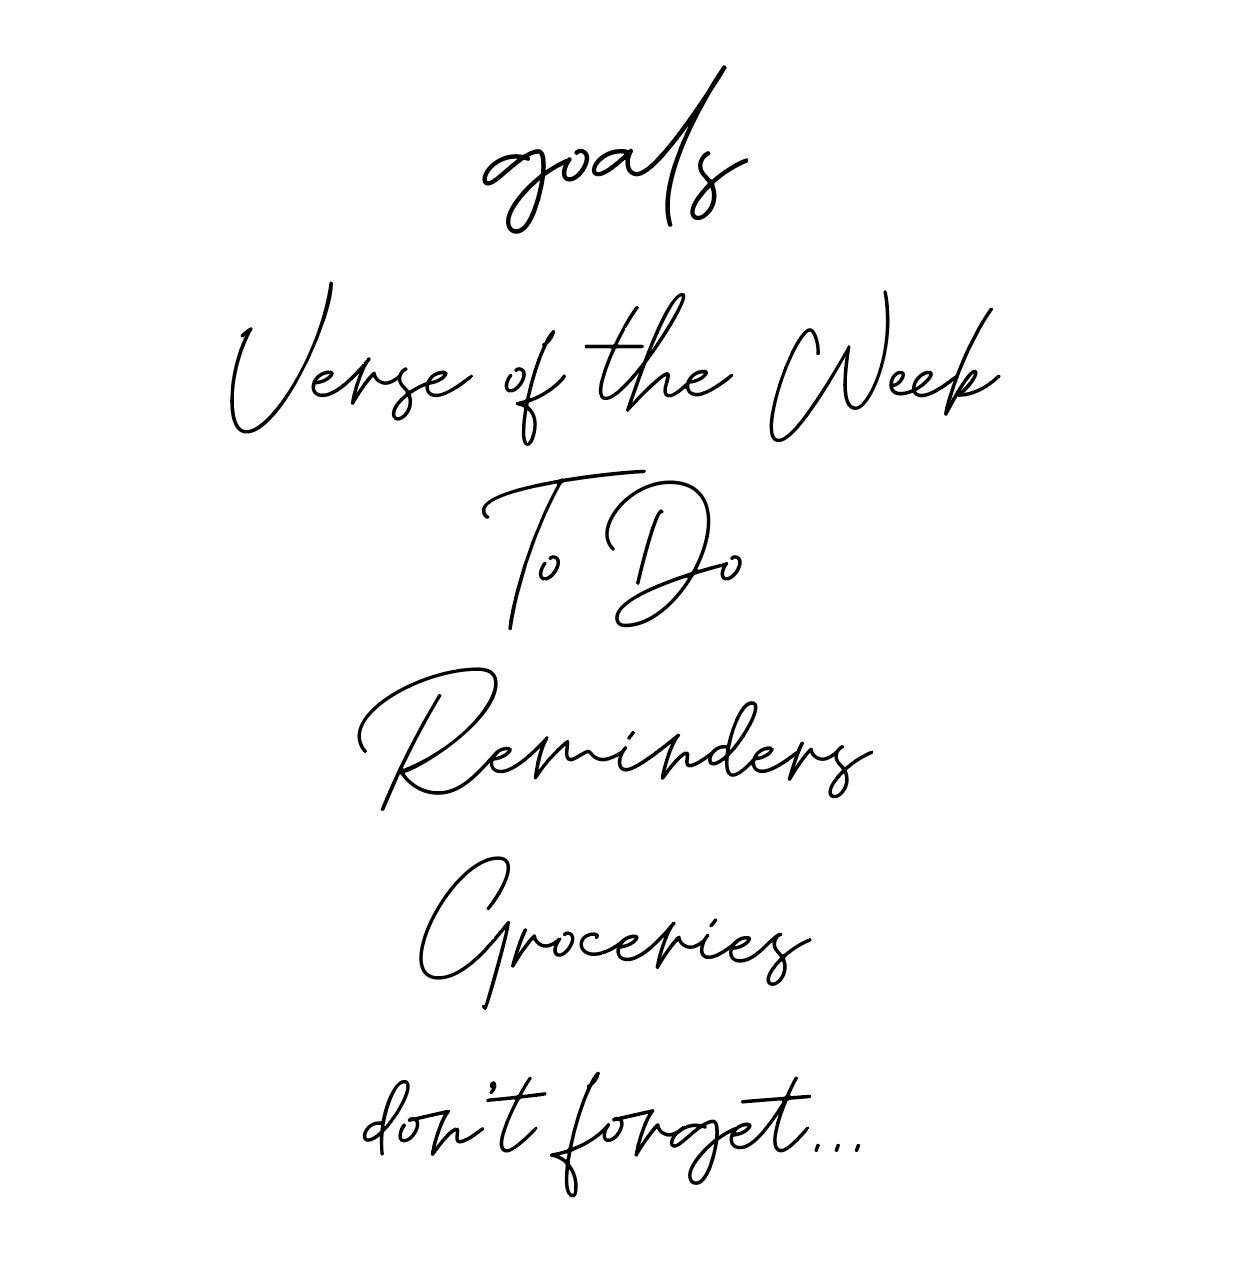 goals
Verse of the Week
To Do
Reminders
Groceries
don't forget...